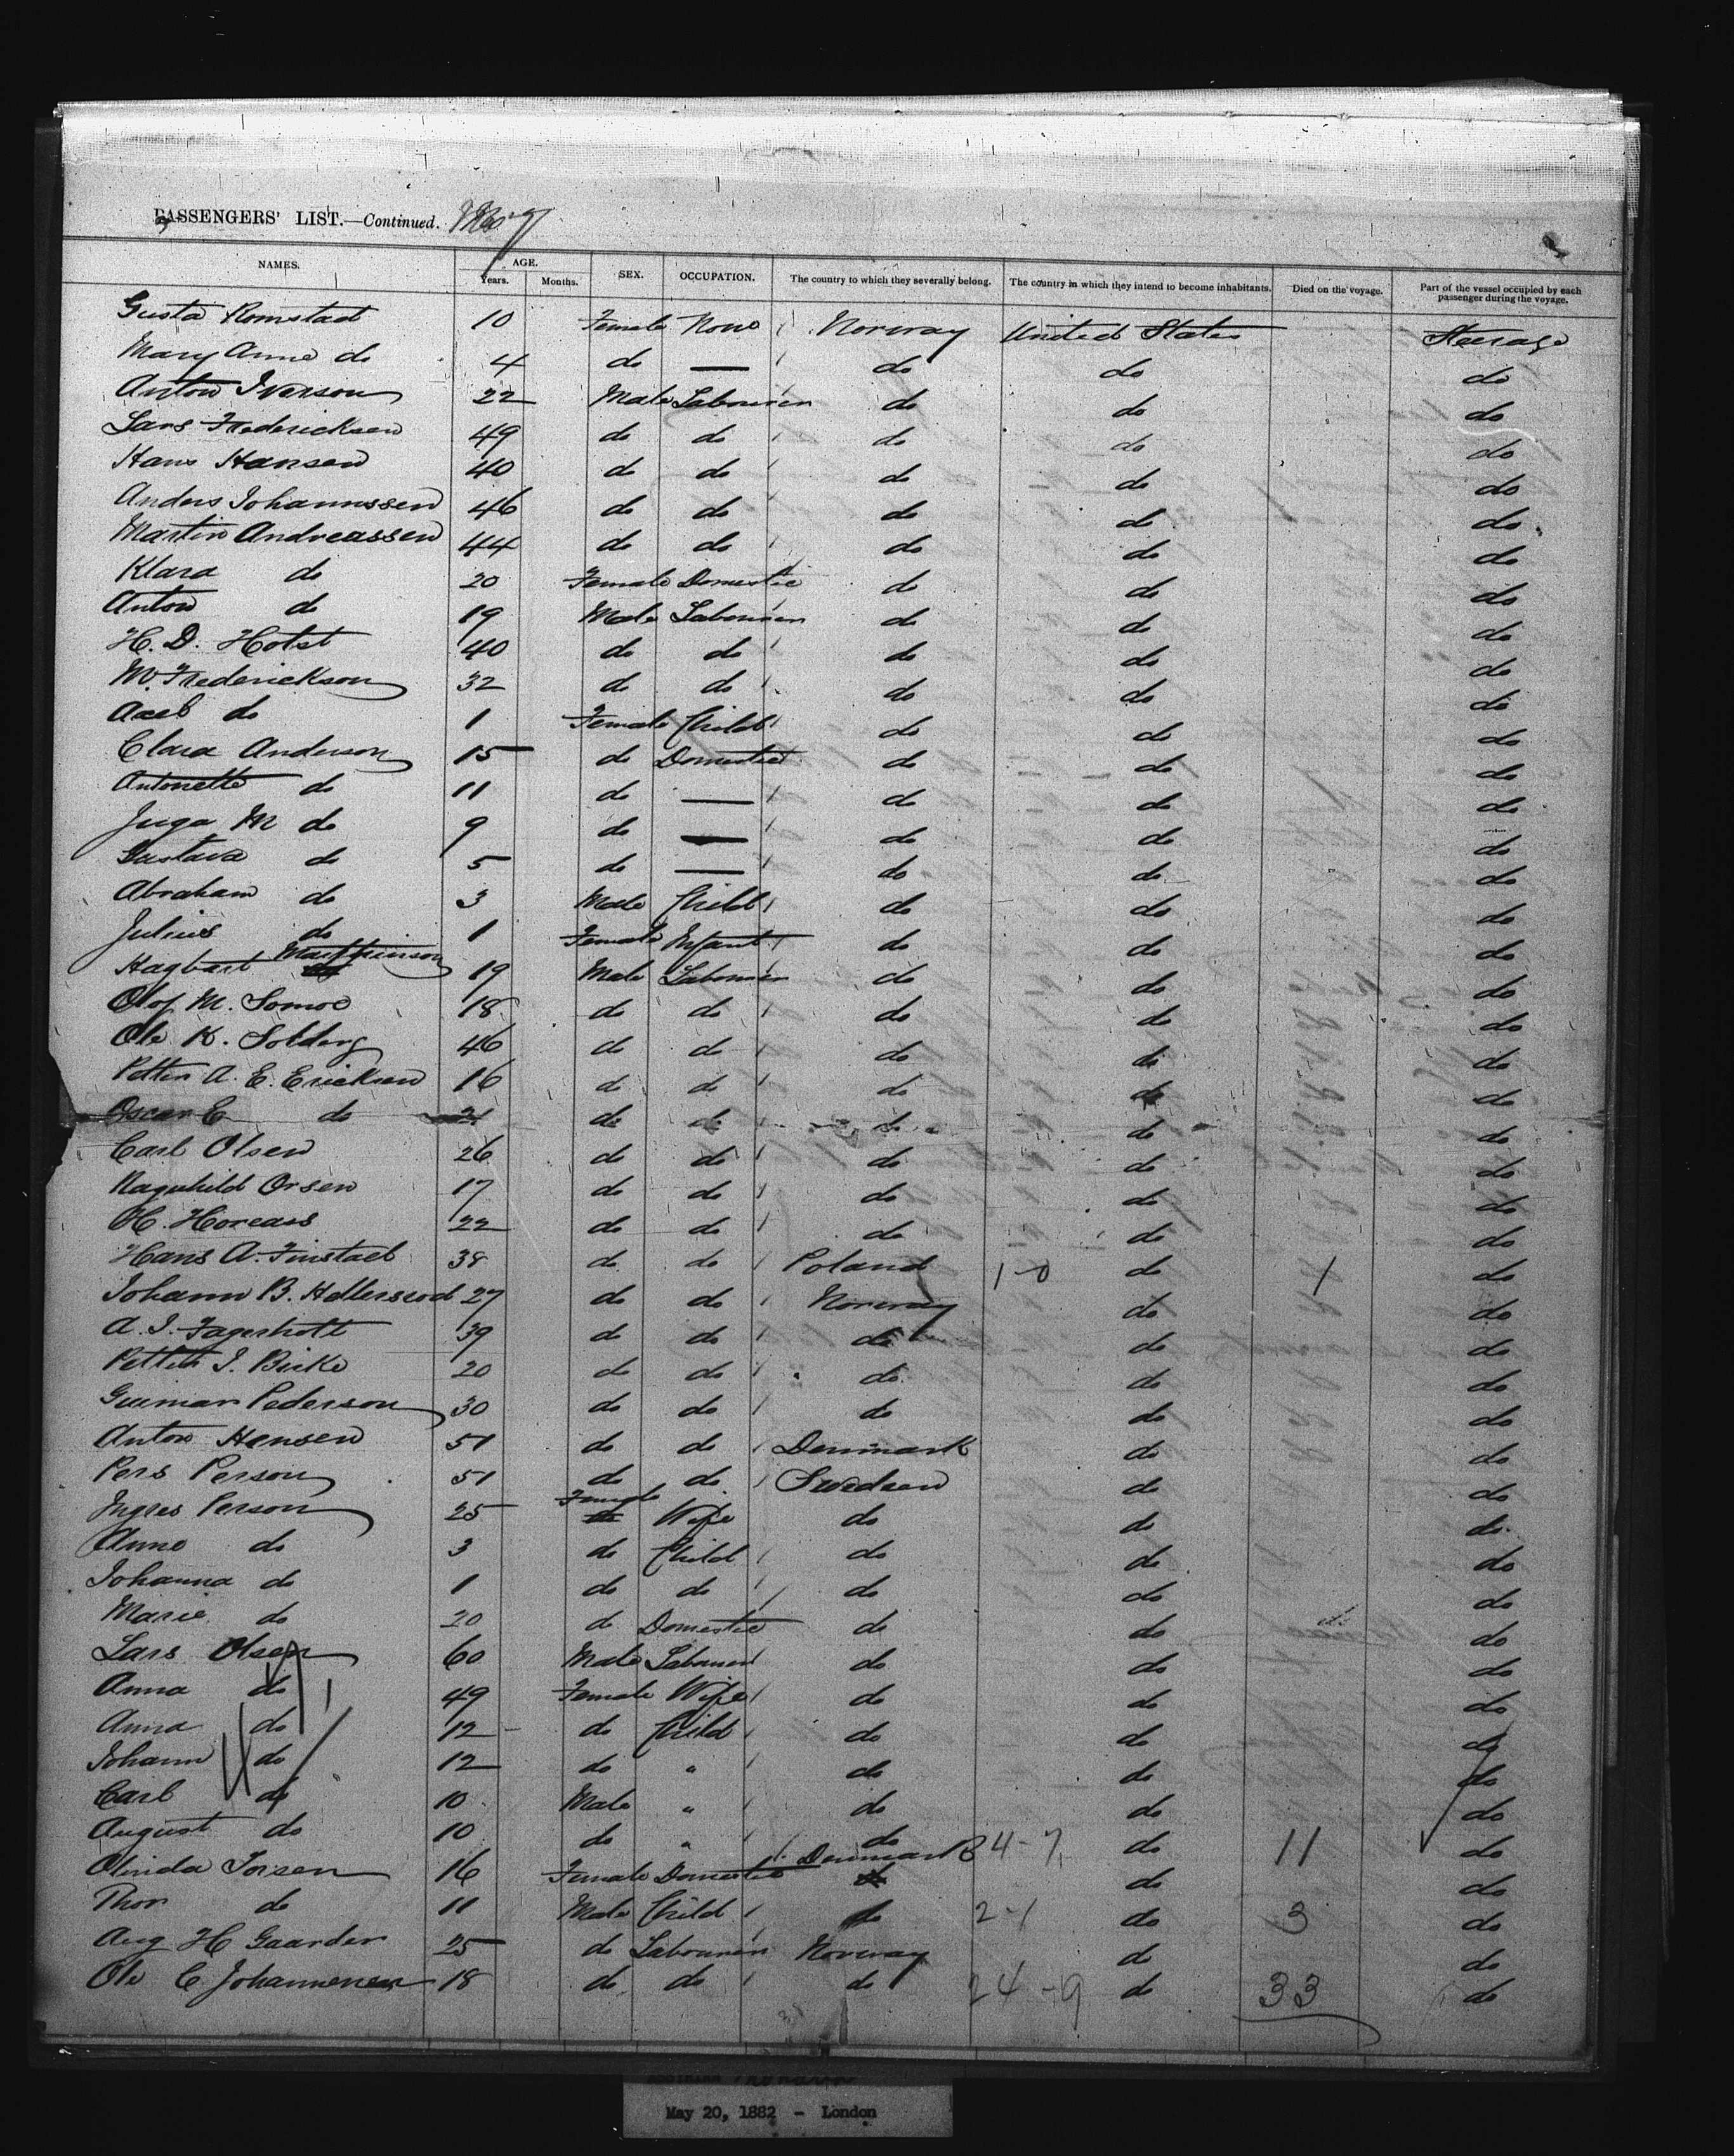 PASSENGERS' LIST.—Continued.
NAMES. AGE. SEX. OCCUPATION. The country to which they severally belong. The country in which they intend to become inhabitants. Died on the voyage. Part of the vessel occupied by each passenger during the voyage.
Years. Months.
Gusta Romstad 10 Female None Norway United States Steerage
Mary Anne do 4 do — do do do
Anton Iverson 22 Male Labourer do do do
Lars Fredericksen 49 do do do do do
Hans Hansen 40 do do do do do
Anders Johannssen 46 do do do do do
Martin Andreassen 44 do do do do do
Klara do 20 Female Domestic do do do
Anton do 19 Male Labourer do do do
H. D. Holst 40 do do do do do
M. Frederickson 32 do do do do do
Axel do 1 Female Child do do do
Clara Anderson 15 do Domestic do do do
Antonette do 11 do — do do do
Inga M do 9 do — do do do
Gustava do 5 do — do do do
Abraham do 3 Male Child do do do
Julius do 1 Female Infant do do do
Hagbart 19 Male Labourer do do do
Olof M. 18 do do do do do
Ole K. Solberg 46 do do do do do
Petter A. E. Ericksen 16 do do do do do
Oscar E do 21 do do do do do
Carl Olsen 26 do do do do do
Ragnhild Orsen 17 do do do do do
H. Horeass 22 do do do do do
Hans A. Finstad 38 do do Poland 1-0 do 1 do
Johann B. 27 do do Norway do do
A. J. Fagerholt 39 do do do do do
Petter J. 20 do do do do do
Gunnar Pederson 30 do do do do do
Anton Hansen 51 do do Denmark do do
Pers Person 51 do do Swedeen do do
Ingres Person 25 Female Wife do do do
Anne do 3 do Child do do do
Johanna do 1 do do do do do
Marie do 20 do Domestic do do do
Lars Olsen 60 Male Labourer do do do
Anna do 49 Female Wife do do do
Anna do 12 do Child do do do
Johann do 12 do " do do do
Carl do 10 Male " do do do
August do 10 do " do 4-7 do 11 do
Olinda 16 Female Domestic Denmark do do
Thor do 11 Male Child do 2-1 do 3 do
Aug H Gaarder 25 do Labourer Norway do do
Ole C Johannenen 18 do do do 24-9 do 33 do
May 20, 1882 - London